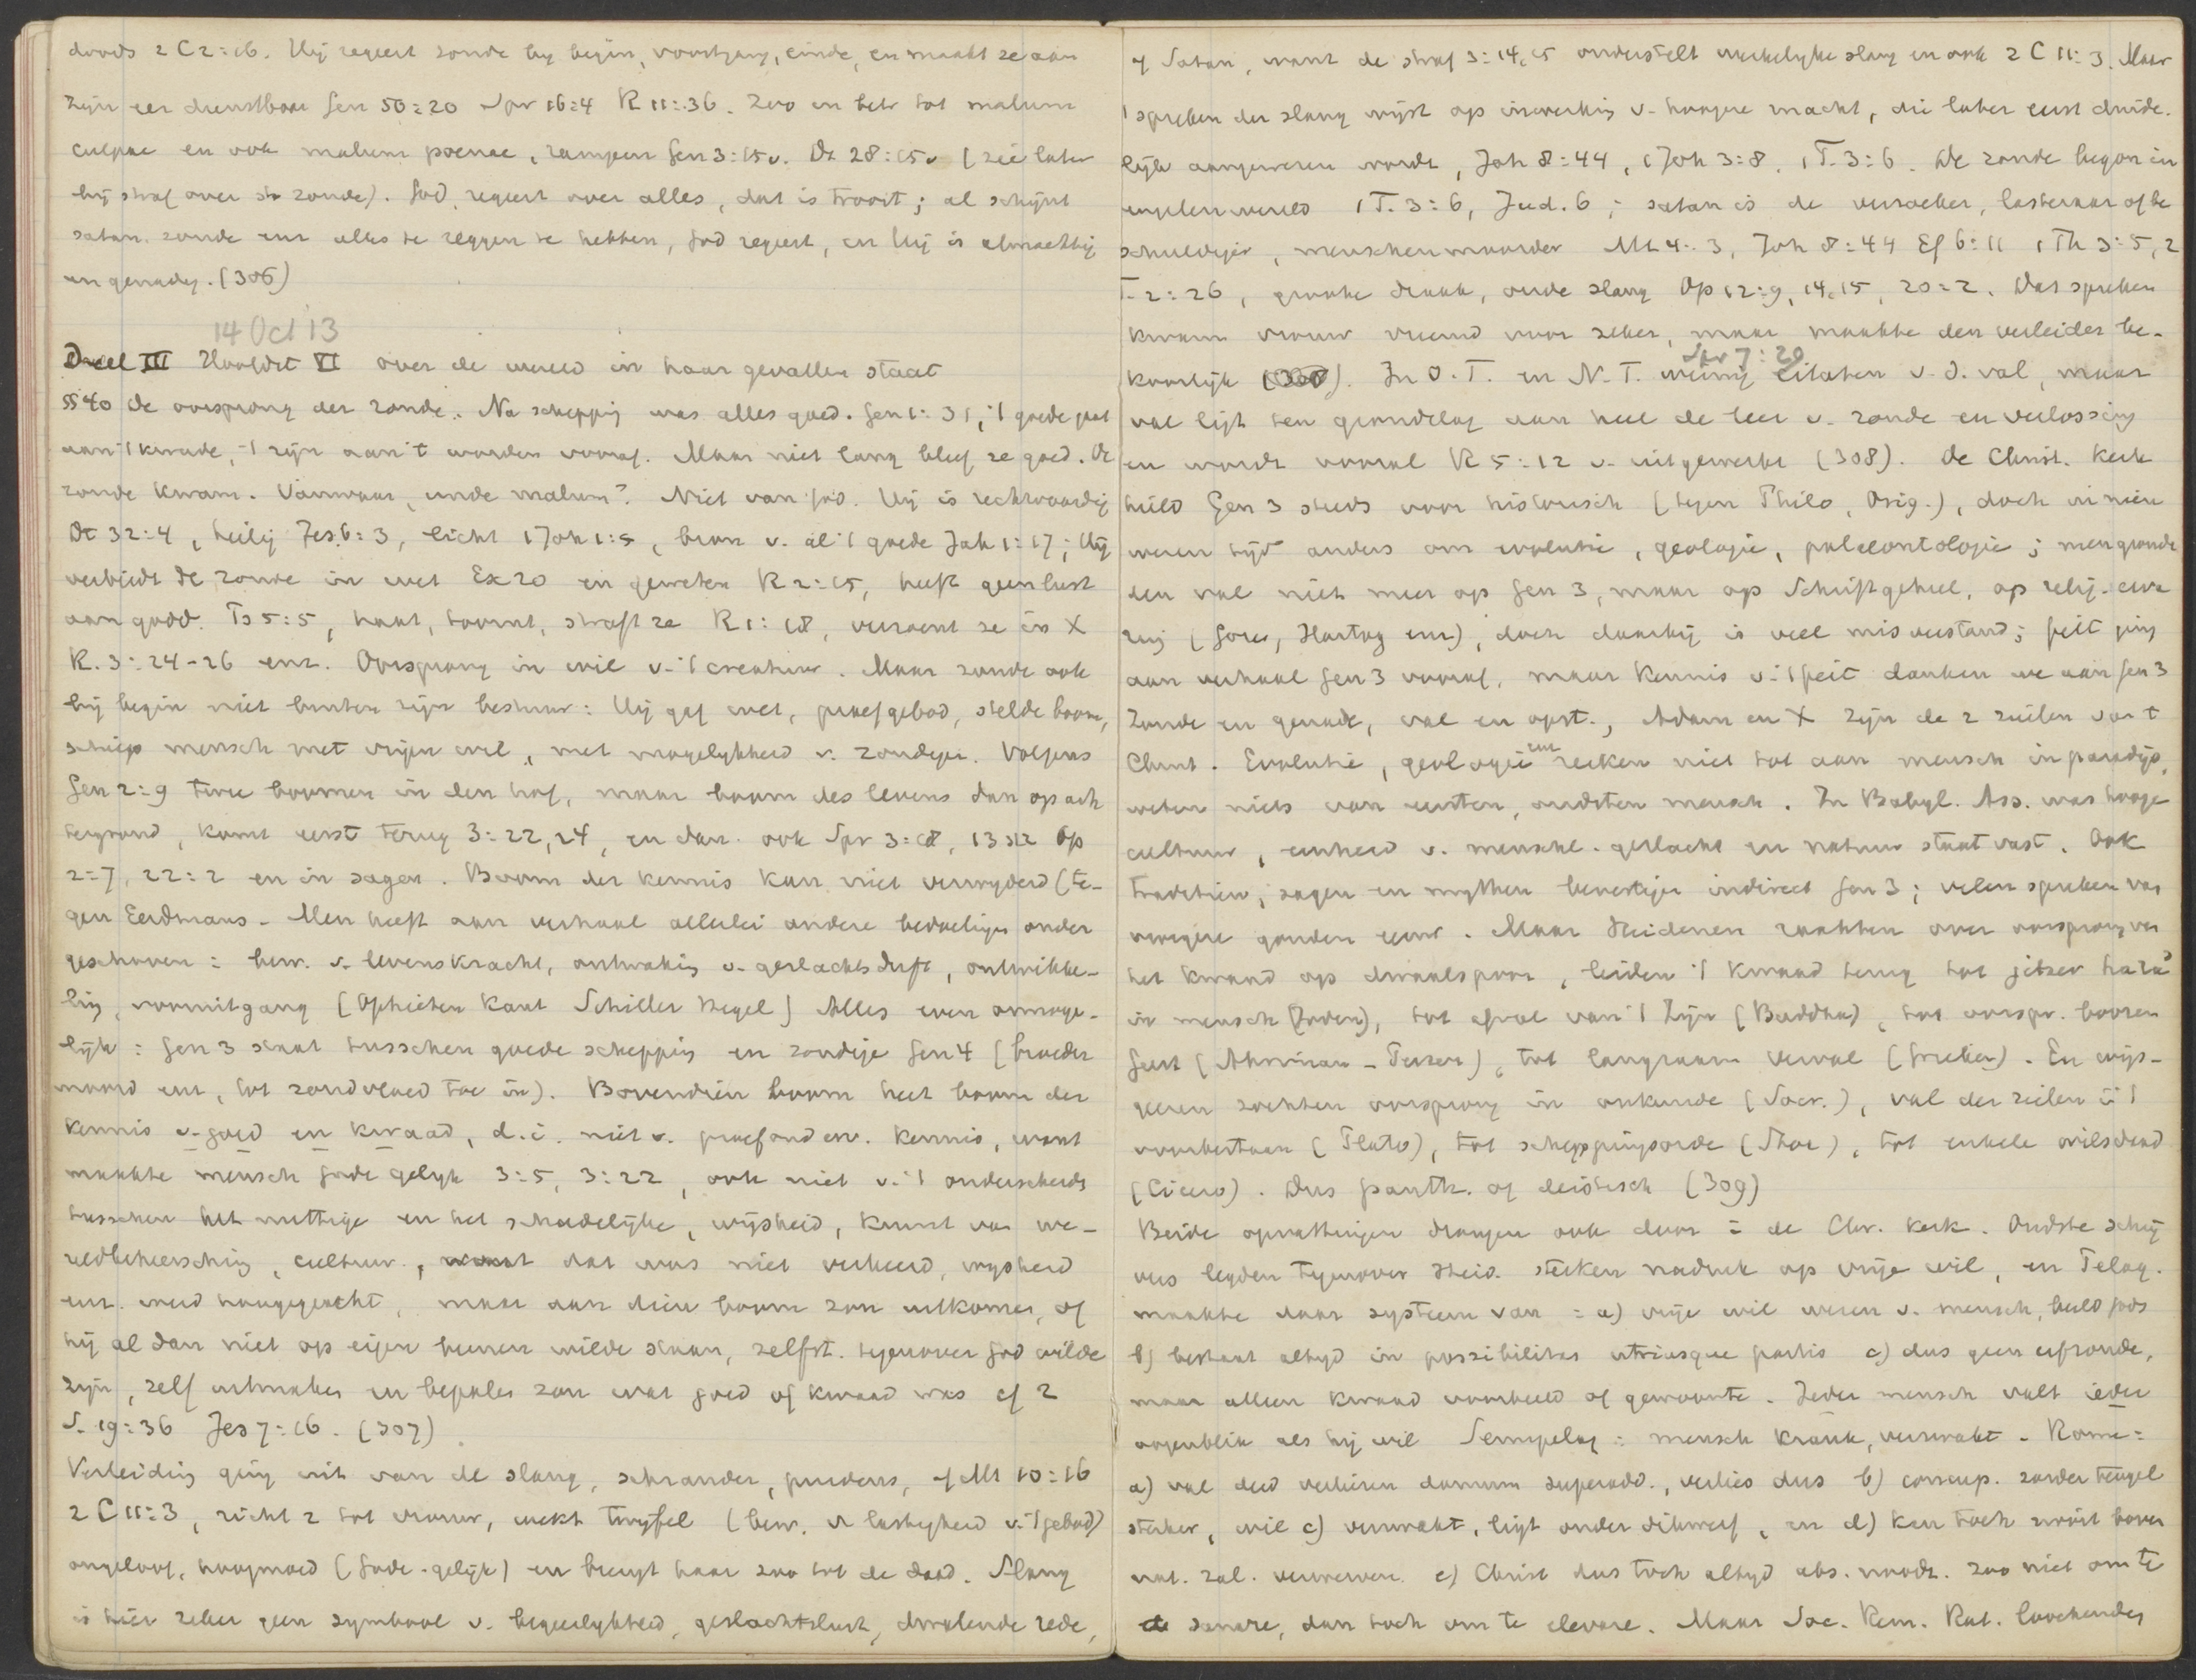 doods 2 C 2:16. Hij regeert zonde bij begin, voortgang, einde, en maakt ze aan
zijn eer dienstbaar Gen 50:20 Spr 16:4 R 11:36. Zoo en betr tot malum
culpae en ook malum poenae, rampen Gen 3:15v. Dt 28:15v (zie later
bij straf over de zonde). God regeert over alles, dat is troost; al schijnt
satan zonde enz alles te zeggen te hebben, God regeert, en Hij is almachtig
en genadig. (306)
14 Oct '13
Deel III Hoofdst VI over de wereld in haar gevallen staat
§§ 40 de oorsprong der zonde. Na schepping was alles goed. Gen 1:31, 't goede gaat
aan 't kwade, 't zijn aan 't worden vooraf. Maar niet lang bleef ze goed. De
zonde kwam. Vanwaar, unde malum? Niet van God. Hij is rechtvaardig
Dt 32:4, heilig Jes 6:3, licht 1 Joh 1:5, bron v. al 't goede Jak 1:17; Hij
verbiedt de zonde in wet Ex 20 en geweten R 2:15, heeft geen lust
aan godd. Ps 5:5, haat, toornt, straft ze R 1:18, verzoent ze in X
R. 3:24-26 enz. Oorsprong in wil v. 't creatuur. Maar zonde ook
bij begin niet buiten zijn bestuur: Hij gaf wet, proefgebod, stelde boom,
schiep mensch met vrijen wil, met mogelykheid v. zondigen. Volgens
Gen 2:9 twee boomen in den hof, maar boom des levens dan op ach
tergrond, komt eerst terug 3:22,24, en dan ook Spr 3:18, 13:12 Op
2:7, 22:2 en in sagen. Boom der kennis kan niet verwyderd (te-
gen Eerdmans - Men heeft aan verhaal allerlei andere bedoelingen onder
geschoven: bew. v. levenskracht, ontwaking v. geslachtsdrift, ontwikke-
ling, vooruitgang [Ophieten Kant Schiller Hegel] Alles even onmoge-
lijk: Gen 3 staat tusschen goede schepping en zondige Gen 4 (broeder
moord enz, tot zondvloed toe in). Bovendien boom heet boom der
kennis v. goed en kwaad, d.i. niet v. proefonderv. kennis, want
maakte mensch Gode gelyk 3:5, 3:22, ook niet v. 't onderscheids
tusschen het nuttige en het schadelijke, wijsheid, kunst van we-
reldbeheersching, cultuur, want dat was niet verkeerd, wysheid
enz. werd hooggeacht, maar aan dien boom zou uitkomen, of
hij al dan niet op eigen beenen wilde staan, zelfst. tegenover God wilde
zijn, zelf uitmaken en bepalen zou wat goed of kwaad was cf 2
S. 19:36 Jes 7:16. (307)
Verleiding ging uit van de slang, schrander, prudens, cf Mt 10:16
2 C 11:3, richt z tot vrouw, wekt twyfel (bew. v lastigheid v. 't gebod)
ongeloof, hoogmoed (Gode-gelijk) en brengt haar zoo tot de daad. Slang
is hier zeker geen symbool v. begeerlykheid, geslachtslust, dwalende rede,
of Satan, want de straf 3:14,15 onderstelt werkelyke slang en ook 2 C 11:3. Maar
't spreken der slang wijst op inwerking v. hoogere macht, die later eerst duide-
lijk aangewezen wordt, Joh 8:44, 1 Joh 3:8. 1 T. 3:6. De zonde begon in
engelenwereld 1 T. 3:6, Jud. 6; satan is de verzoeker, lasteraar of be
schuldiger, menschenmoorder Mt 4:3, Joh 8:44 Ef 6:11 1 Th 3:5, 2
T. 2:26, groote draak, oude slang Op 12:9, 14,15, 20:2. Dat spreken
kwam vrouw vreemd voor zeker, maar maakte den verleider be-
Spr 7:29
koorlijk (308). In O.T. en N.T. weinig citaten v. d. val, maar
val ligt ten grondslag aan heel de leer v. zonde en verlossing
en wordt vooral R 5:12 v. uitgewerkt (308). De Christ. Kerk
hield Gen 3 steeds voor historisch (tegen Philo, Orig.), doch in nieu
weren tijd anders om evolutie, geologie, palaeontologie; men grondt
den val niet meer op Gen 3, maar op Schriftgeheel, op relig. erva
ring (Gore, Hartog enz), doch daarbij is veel misverstand; feit ging
aan verhaal Gen 3 vooraf, maar kennis v. 't feit danken we aan Gen 3
Zonde en genade, val en opst., Adam en X zijn de 2 zuilen van t
Christ. Evolutie, geologie enz reiken niet tot aan mensch in paradijs,
weten niets van eersten, oudsten mensch. In Babyl. Ass. was hooge
cultuur, eenheid v. menschl. geslacht en natuur staat vast. Ook
tradities, sagen en mythen bevestigen indirect Gen 3; velen spreken van
vroegere gouden eeuw. Maar Heidenen raakten over oorsprong van
het kwaad op dwaalspoor, leiden 't kwaad terug tot jetzer hara
in mensch (Joden), tot afval van 't Zijn (Buddha), tot oorspr. boozen
geest (Ahriman - Perzen), tot langzaam verval (Grieken). En wijs-
geeren zochten oorsprong in onkunde (Socr.), val der zielen in 't
voorbestaan (Plato), tot scheppingsorde (Stoa), tot enkele wilsdaad
(Cicero). Dus panth. of deïstisch (309)
Beide opvattingen drongen ook door in de Chr. Kerk. Oudste schrij
vers legden tegenover Heid. sterken nadruk op vrije wil, en Pelag.
maakte daar systeem van: a) vrije wil wezen v. mensch, beeld Gods
b) bestaat altyd in possibilitas utriusque partis c) dus geen erfzonde,
maar alleen kwaad voorbeeld of gewoonte. Ieder mensch valt ieder
oogenblik als hij wil Semipelag: mensch krank, verzwakt - Rome:
a) val deed verliezen donum superadd., verlies dus b) concup. zonder teugel
sterker, wil c) verzwakt, ligt onder dikwerf, en d) kan toch nooit boven
nat. zal. verwerven. e) Christ dus toch altyd abs. noodz. zoo niet om te
sanare, dan toch om te elevare. Maar Soc. Rem. Rat. loochenden